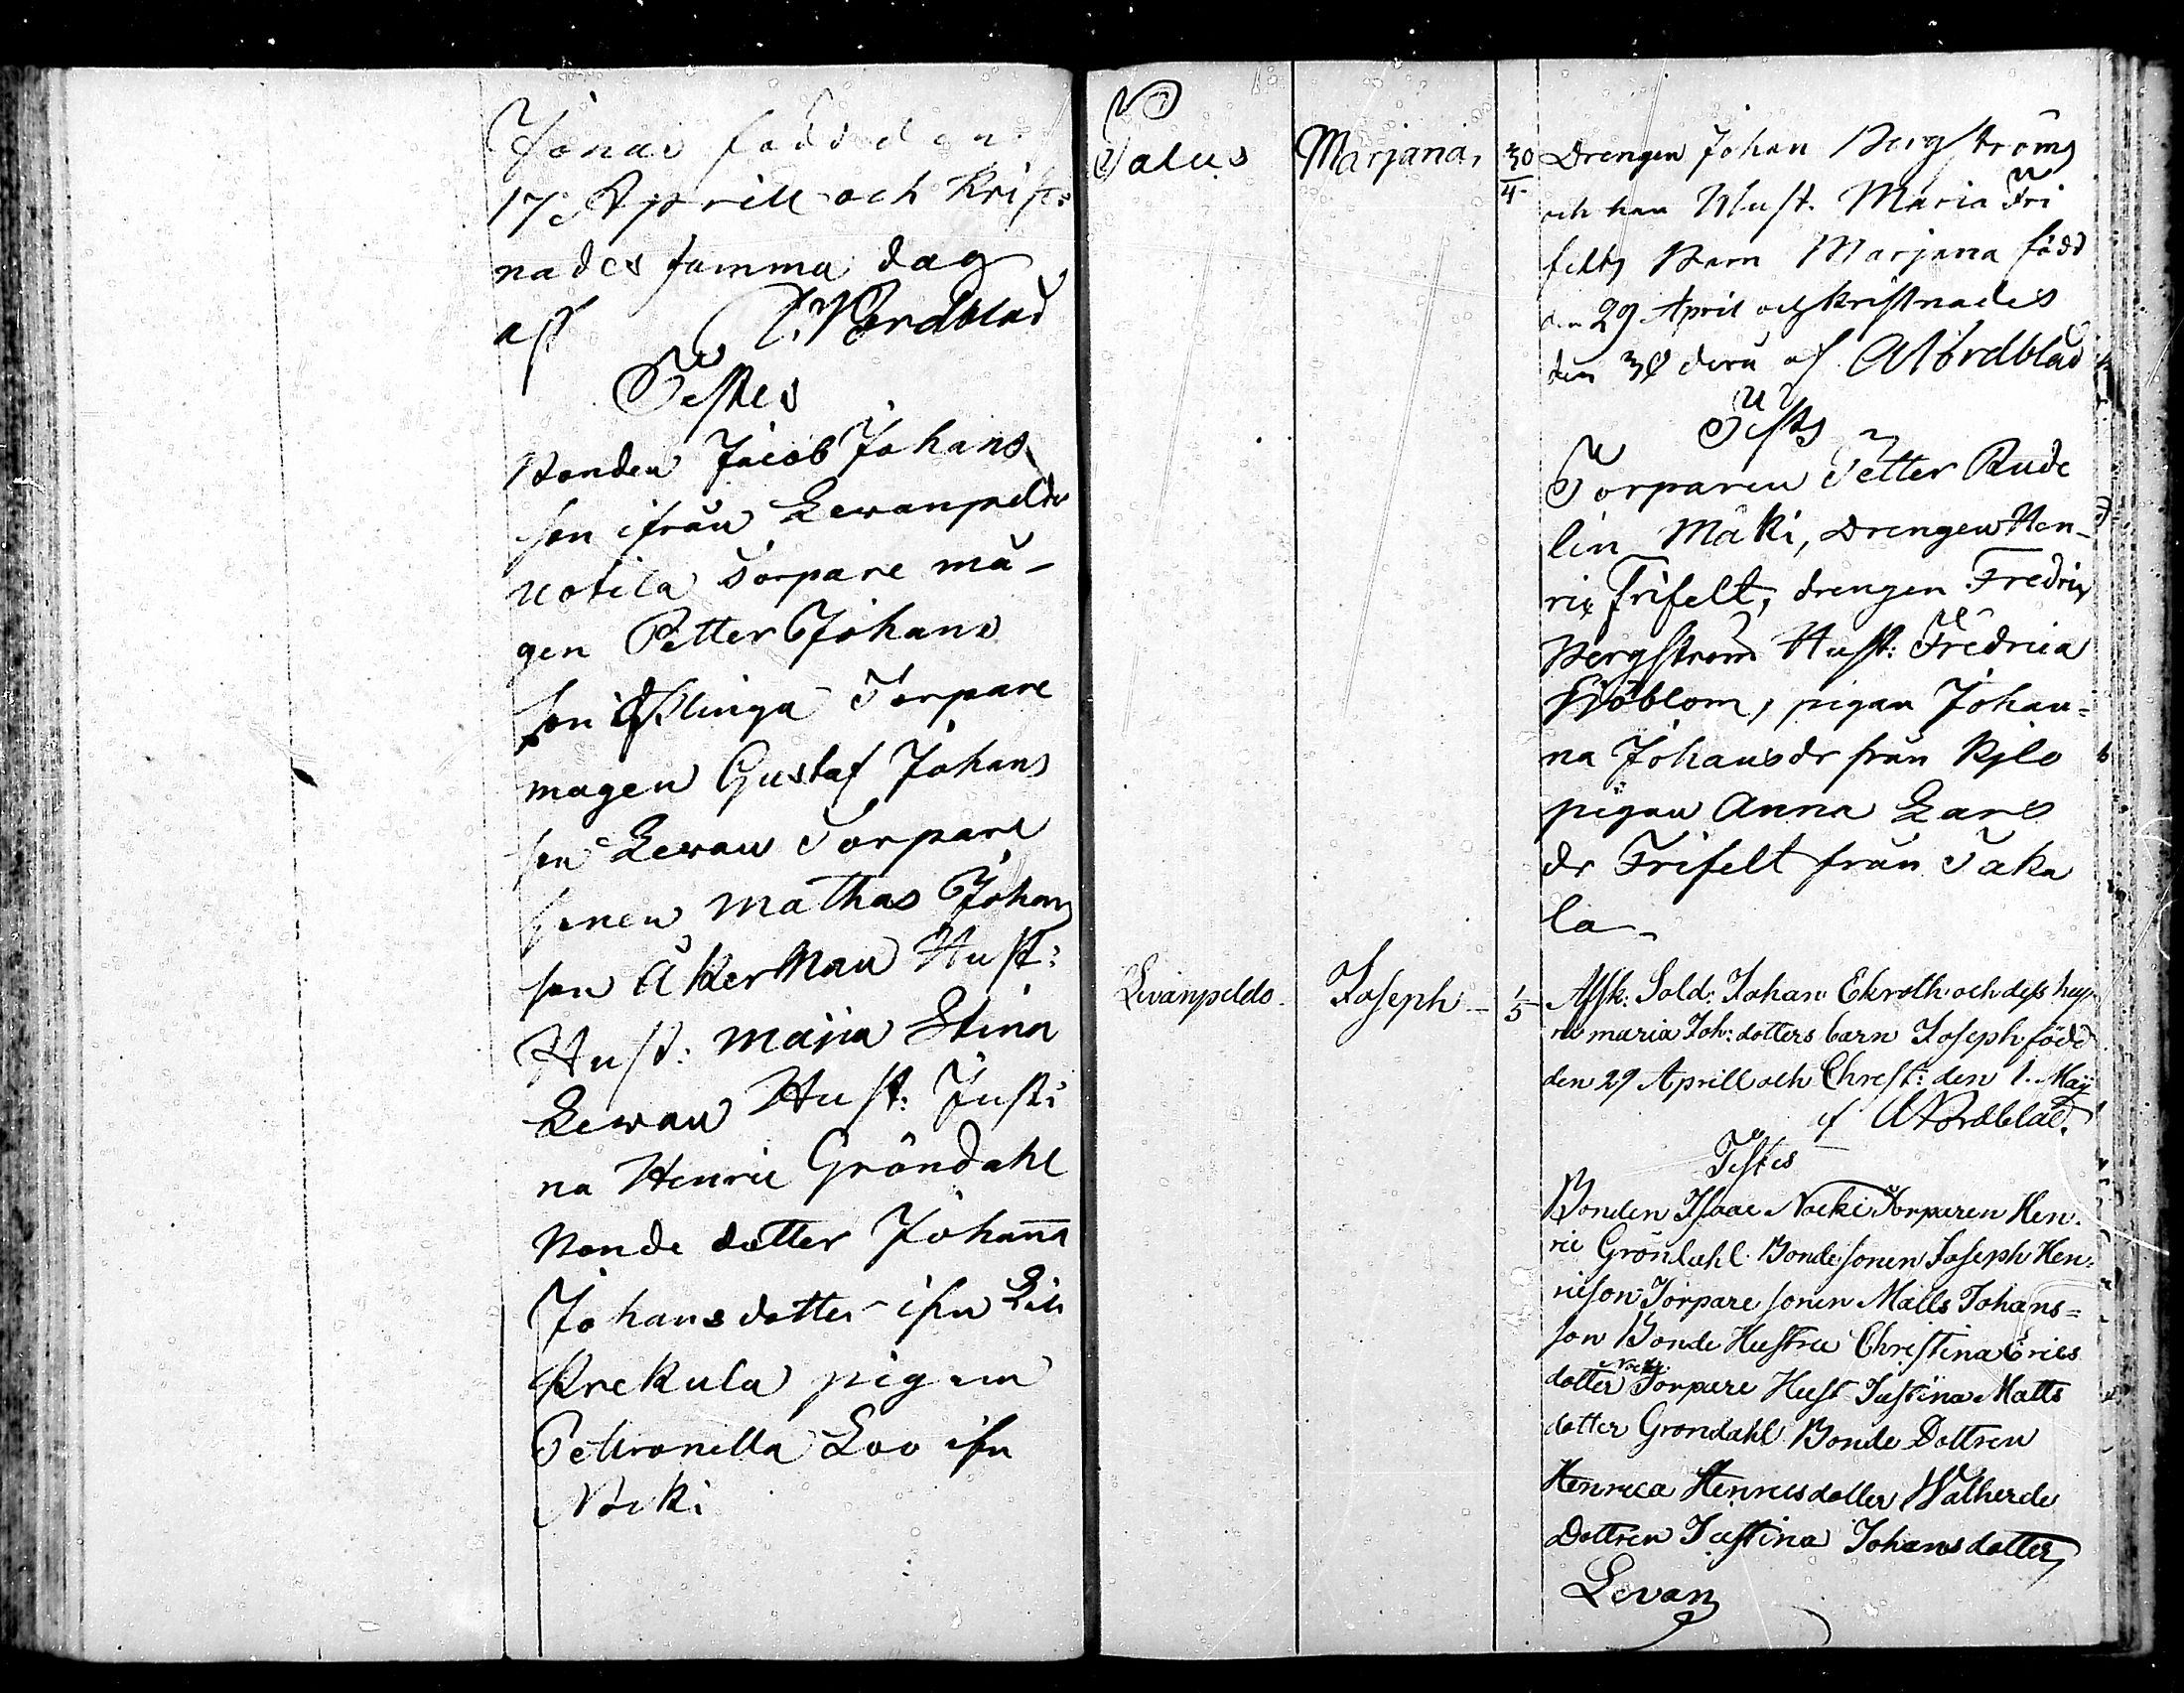 Jonas född den
17 Aprill och krist:
nades samma dag
af A. Nordblad
Testes
Bonden Jacob Johans
son ifrån Lewanpeldo
uotila Torpare må-
gen Petter Johans
son Torpare
magen Gustaf Johans
son Lewan Torpare
sonen Mathas Johans
son Åkerman Hust:
Hust: Maija Stina
Lewan Hust: Justi
na Henric Gröndahl
Bonde dotter Johanna
Johansdotter ifrn Lill
Krekula pigan
Petronella Loo ifrn
Nocki
Talus Marjana, 30/4 Drengen Johan Bergströms
och han Hust. Maria Fri
felts Barn Marjana född
den 29 April och kristnades
den 30 deru af A Nordblad
Tests
Torparen Petter Rude
lin Mäki, Drengen Hen-
ric Frifelt, drengen Fredric
Bergström Hust: Fredrica
Sjöblom, pigan Johan=
na Johansdr från Kylo
pigan Anna Lars
dr Frifelt från Taka
la-
Levanpeldo- Joseph- 1/5 Afsk: Sold: Johan Ekroth och dess hust
ru maria Joh: dotters barn Joseph född
den 29 Aprill och Christ: den 1. Maij
af A Nordblad.
Testes
Bonden Isaac Nocki Torparen Hen-
ric Gröndahl Bondesonen Joseph Hen-
ricson Torpare sonen Matts Johans=
son Bonde Hustru Christina Erics
dotter Nocki Torpare Hust Justina Matts
dotter Grondahl Bonde Dottren
Henrica Henricsdotter
Dottren Justina Johansdotter
Levan